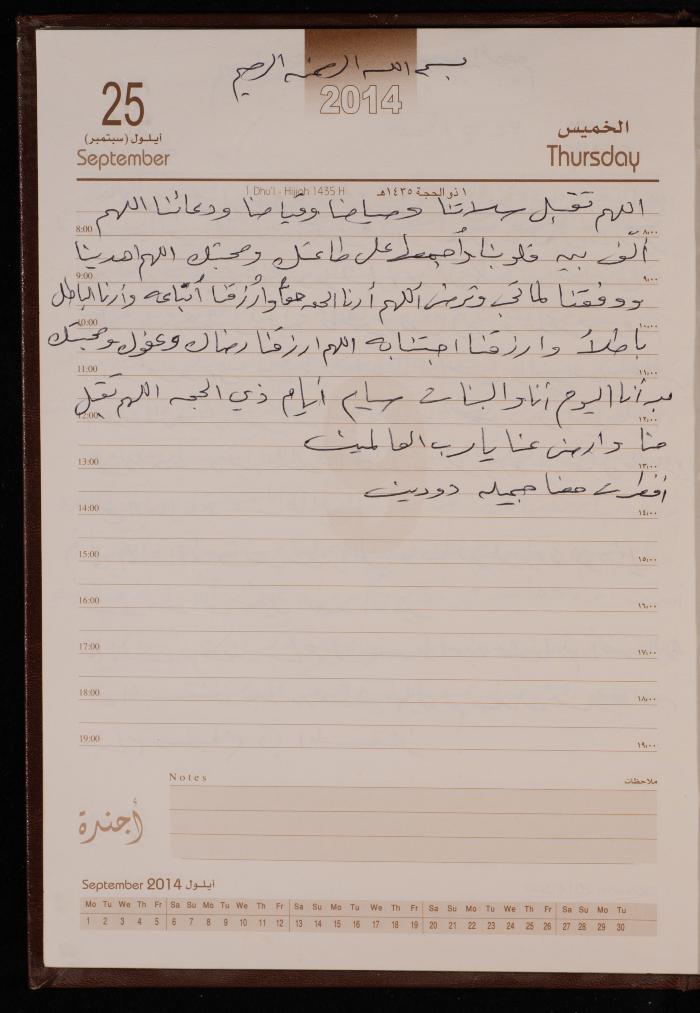 بسم الله الرحمن الرحيم
2014
25
أيلول (سبتمبر)
September
الخميس
Thursday
1 Dhu'l - Hijjah 1435 H
١ ذو الحجة ١٤٣٥هـ
اللهم تقبل صلاتنا وصيامنا وقيامنا ودعائنا اللهم
8:00 ٨:٠٠
ألّف بين قلوبنا وأجمعها على طاعتك ومحبتك اللهم اهدينا
9:00 ٩:٠٠
ووفقنا لما تحب وترضى اللهم أرنا الحق حقاً وأرزقنا أتباعه وأرنا الباطل
10:00 ١٠:٠٠
باطلاً وارزقنا اجتنابه اللهم ارزقنا رضاك وعفوك ومحبتك
11:00 ١١:٠٠
بدأنا اليوم أنا والبنات صيام أيام ذي الحجه اللهم تقبل
12:00 ١٢:٠٠
منا وارض عنا يا رب العالمين
13:00 ١٣:٠٠
أفطرت معنا جميله
14:00 ١٤:٠٠
15:00 ١٥:٠٠
16:00 ١٦:٠٠
17:00 ١٧:٠٠
18:00 ١٨:٠٠
19:00 ١٩:٠٠
Notes ملاحظات
أجندة
September 2014 أيلول
Mo Tu We Th Fr Sa Su Mo Tu We Th Fr Sa Su Mo Tu We Th Fr Sa Su Mo Tu We Th Fr Sa Su Mo Tu
1 2 3 4 5 6 7 8 9 10 11 12 13 14 15 16 17 18 19 20 21 22 23 24 25 26 27 28 29 30